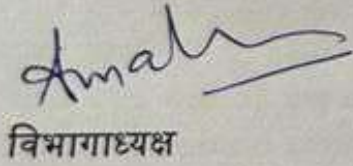 Amal
विभागाध्यक्ष